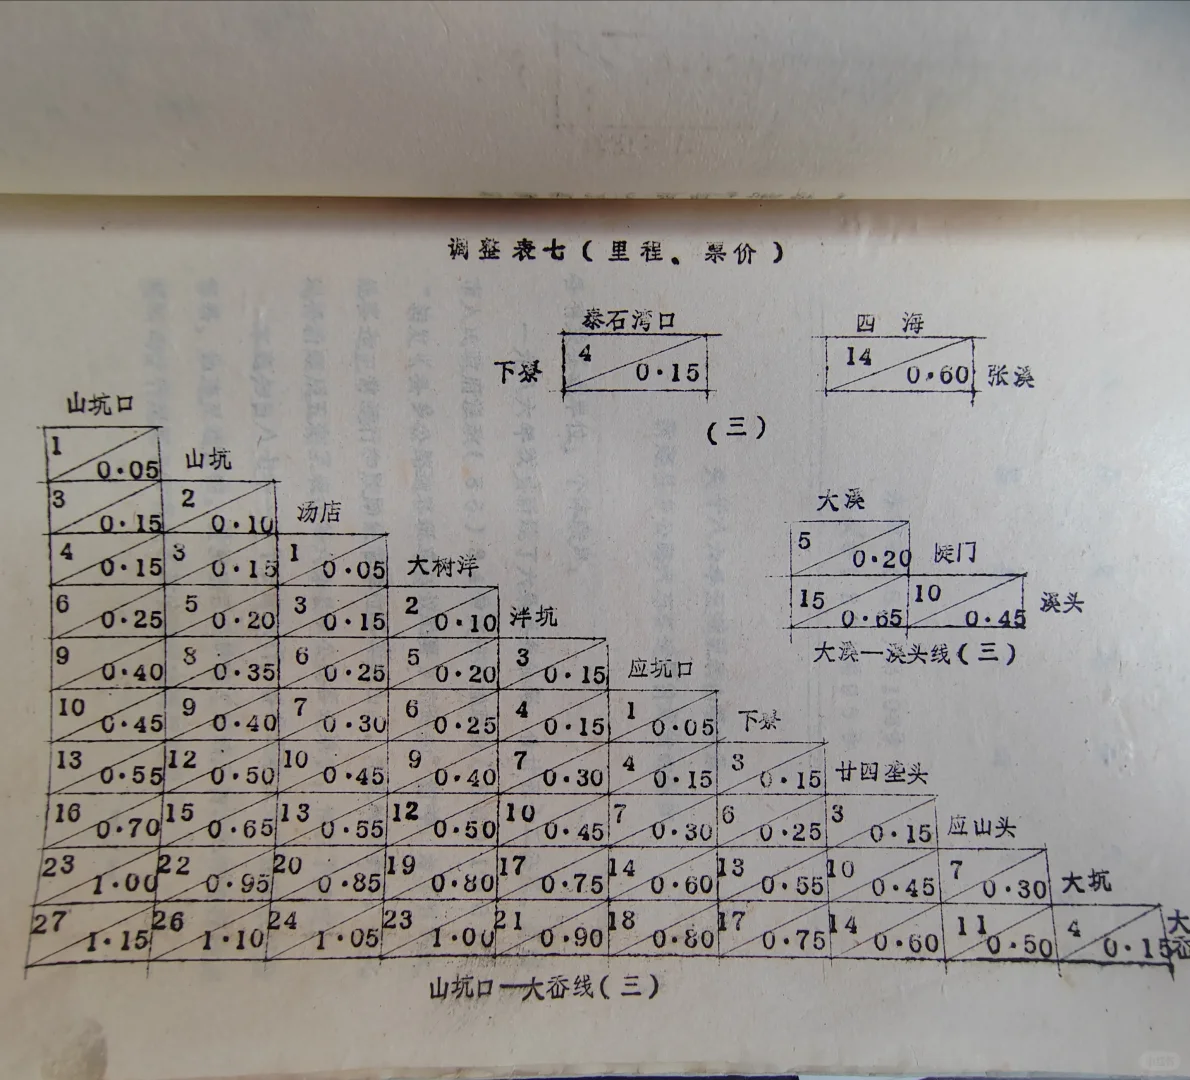 调整表七(里程。票价)
泰石湾口
下寮 4 0·15
四 海
14 0·60 张溪
(三)
山坑口
1 0·05 山坑
3 0·15 2 0·10 汤店
4 0·15 3 0·15 1 0·05 大树洋
6 0·25 5 0·20 3 0·15 2 0·10 泮坑
9 0·40 8 0·35 6 0·25 5 0·20 3 0·15 应坑口
10 0·45 9 0·40 7 0·30 6 0·25 4 0·15 1 0·05 下寮
13 0·55 12 0·50 10 0·45 9 0·40 7 0·30 4 0·15 3 0·15 廿四垄头
16 0·70 15 0·65 13 0·55 12 0·50 10 0·45 7 0·30 6 0·25 3 0·15 应山头
23 1·00 22 0·95 20 0·85 19 0·80 17 0·75 14 0·60 13 0·55 10 0·45 7 0·30 大坑
27 1·15 26 1·10 24 1·05 23 1·00 21 0·90 18 0·80 17 0·75 14 0·60 11 0·50 4 0·15 大岙
山坑口—大岙线(三)
大溪
5 0·20 陡门
15 0·65 10 0·45 溪头
大溪—溪头线(三)